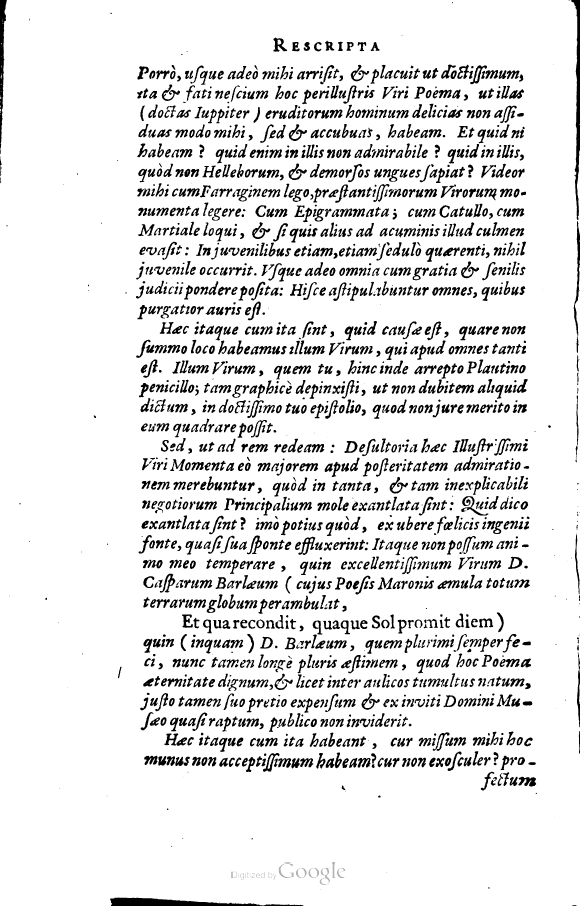 RESCRIPTA
Porrò, uſque adeò mihi arriſit, & placuit ut doctiſſimum,
ita & fati neſcium hoc perilluſtris Viri Poëma, ut illas
( doctas Iuppiter ) eruditorum hominum delicias non aſſi-
duas modo mihi, ſed & accubuas, habeam. Et quid ni
habeam ? quid enim in illis non admirabile ? quid in illis,
quòd non Helleborum, & demorſos ungues ſapiat? Videor
mihi cum Farraginem lego, præſtantiſſimorum Virorum mo-
numenta legere: Cum Epigrammata; cum Catullo, cum
Martiale loqui, & ſi quis alius ad acuminis illud culmen
evaſit: In juvenilibus etiam, etiam ſedulò quærenti, nihil
juvenile occurrit. Vſque adeo omnia cum gratia & ſenilis
judicii pondere poſita: Hiſce aſtipulabuntur omnes, quibus
purgatior auris eſt.
Hæc itaque cum ita ſint, quid cauſæ eſt, quare non
ſummo loco habeamus illum Virum, qui apud omnes tanti
eſt. Illum Virum, quem tu, hinc inde arrepto Plautino
penicillo; tam graphicè depinxiſti, ut non dubitem aliquid
dictum, in doctiſſimo tuo epiſtolio, quod non jure merito in
eum quadrare poſſit.
Sed, ut ad rem redeam: Deſultoria hæc Illuſtriſſimi
Viri Momenta eò majorem apud poſteritatem admiratio-
nem merebuntur, quòd in tanta, & tam inexplicabili
negotiorum Principalium mole exantlata ſint: Quid dico
exantlata ſint? imò potius quòd, ex ubere fœlicis ingenii
fonte, quaſi ſua ſponte effluxerint: Itaque non poſſum ani-
mo meo temperare, quin excellentiſſimum Virum D.
Caſparum Barlæum ( cujus Poeſis Maronis æmula totum
terrarum globum perambulat,
Et qua recondit, quaque Sol promit diem)
quin ( inquam ) D. Barlæum, quem plurimi ſemper fe-
ci, nunc tamen longè pluris æſtimem, quod hoc Poëma
æternitate dignum, & licet inter aulicos tumultus natum,
juſto tamen ſuo pretio expenſum & ex inviti Domini Mu-
ſæo quaſi raptum, publico non inviderit.
Hæc itaque cum ita habeant, cur miſſum mihi hoc
munus non acceptiſſimum habeam? cur non exoſculer? pro-
fectum
Digitized by Google